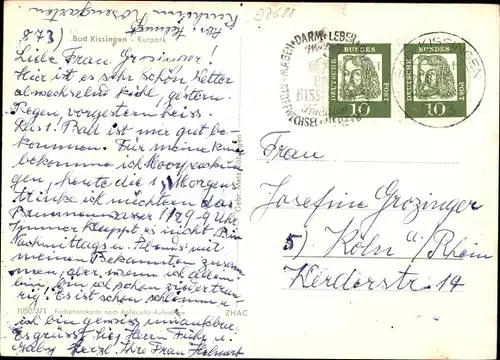 Abs. Helmut
Kurheim Rosengarten
873)
Bad Kissingen – Kurpark
Liebe Frau Grozinger!
Hier ist es sehr schön Wetter
abwechselnd kühl, gestern
Regen, vorgestern heiss.
Rast. Bad ist mir gut be-
kommen. Für meine Knie
bekomme ich Moorpackun
gen, heute die 1. Morgens
trinke ich nüchtern das
Brunnenwasser 1/2 9 - 9 Uhr
Immer klappt es nicht. Bin
Nachmittags u. Abends mit
meinen Bekannten zusam
men, aber, wenn ich allein
bin, bin ich schon wieder trau
rig! Es ist schon schlimm u.
ich bin gewiss undankbar.
Es grüsst Sie, Herrn
herzl. Ihre Frau Helmut
1050/371 Farbphotokarte nach Agfacolor-Aufnahme
ZHAC
Gebr. Metz, Tübingen
97688
MAGEN · DARM · LEBER
BAD KISSINGEN
DEUTSCHE BUNDESPOST
10
DEUTSCHE BUNDESPOST
10
Frau
Josefine Grozinger
5) Köln a/Rhein
Werderstr. 14